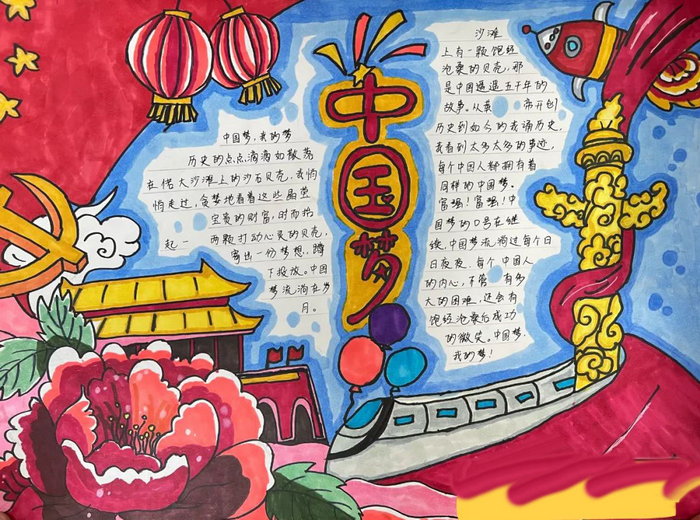 中国梦
中国梦,我的梦
历史的点点滴滴如散落
在偌大沙滩上的沙石贝壳,我悄
悄走过,贪婪地看着这些晶莹
宝贵的财富,时而拾
起一两颗打动心灵的贝壳,
写出一份梦想,蹲
下投放。中国
梦流淌在岁
月。
沙滩
上有一颗饱经
沧桑的贝壳,那
是中国遥遥五千年的
故事。从黄帝开创
历史到如今的我诵历史,
我看到太多太多的事迹,
每个中国人都拥有着
同样的中国梦。
富强!富强!中
国梦的口号在继
续,中国梦流淌过每个日
日夜夜,每个中国人
的内心,不管有多
大的困难,还会有
饱经沧桑后成功
的微笑。中国梦,
我的梦!